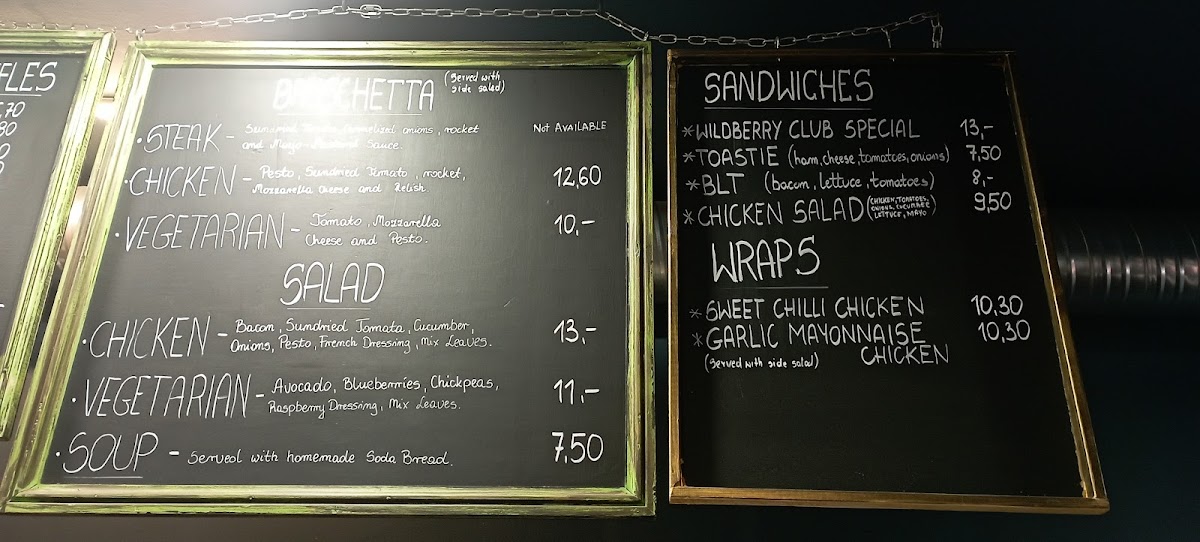 FLES
,70
80
0
BRUSCHETTA (Served with
side salad)
• STEAK - Sundried Tomato, Caramelized onions, rocket
and Mayo-Mustard Sauce.
Not AVAILABLE
• CHICKEN - Pesto, Sundried Tomato, rocket,
Mozzarella Cheese and Relish.
12,60
• VEGETARIAN - Tomato, Mozzarella
Cheese and Pesto.
10,-
SALAD
• CHICKEN - Bacon, Sundried Tomata, Cucumber,
Onions, Pesto, French Dressing, Mix Leaves.
13,-
• VEGETARIAN - Avocado, Blueberries, Chickpeas,
Raspberry Dressing, Mix Leaves.
11,-
• SOUP - Served with homemade Soda Bread.
7,50
SANDWICHES
* WILDBERRY CLUB SPECIAL 13,-
* TOASTIE (ham, cheese, tomatoes, onions) 7,50
* BLT (bacon, lettuce, tomatoes) 8,-
* CHICKEN SALAD (CHICKEN, TOMATOES,
ONIONS, CUCUMBER
LETTUCE, MAYO)
9,50
WRAPS
* SWEET CHILLI CHICKEN 10,30
* GARLIC MAYONNAISE 10,30
CHICKEN
(Served with side salad)